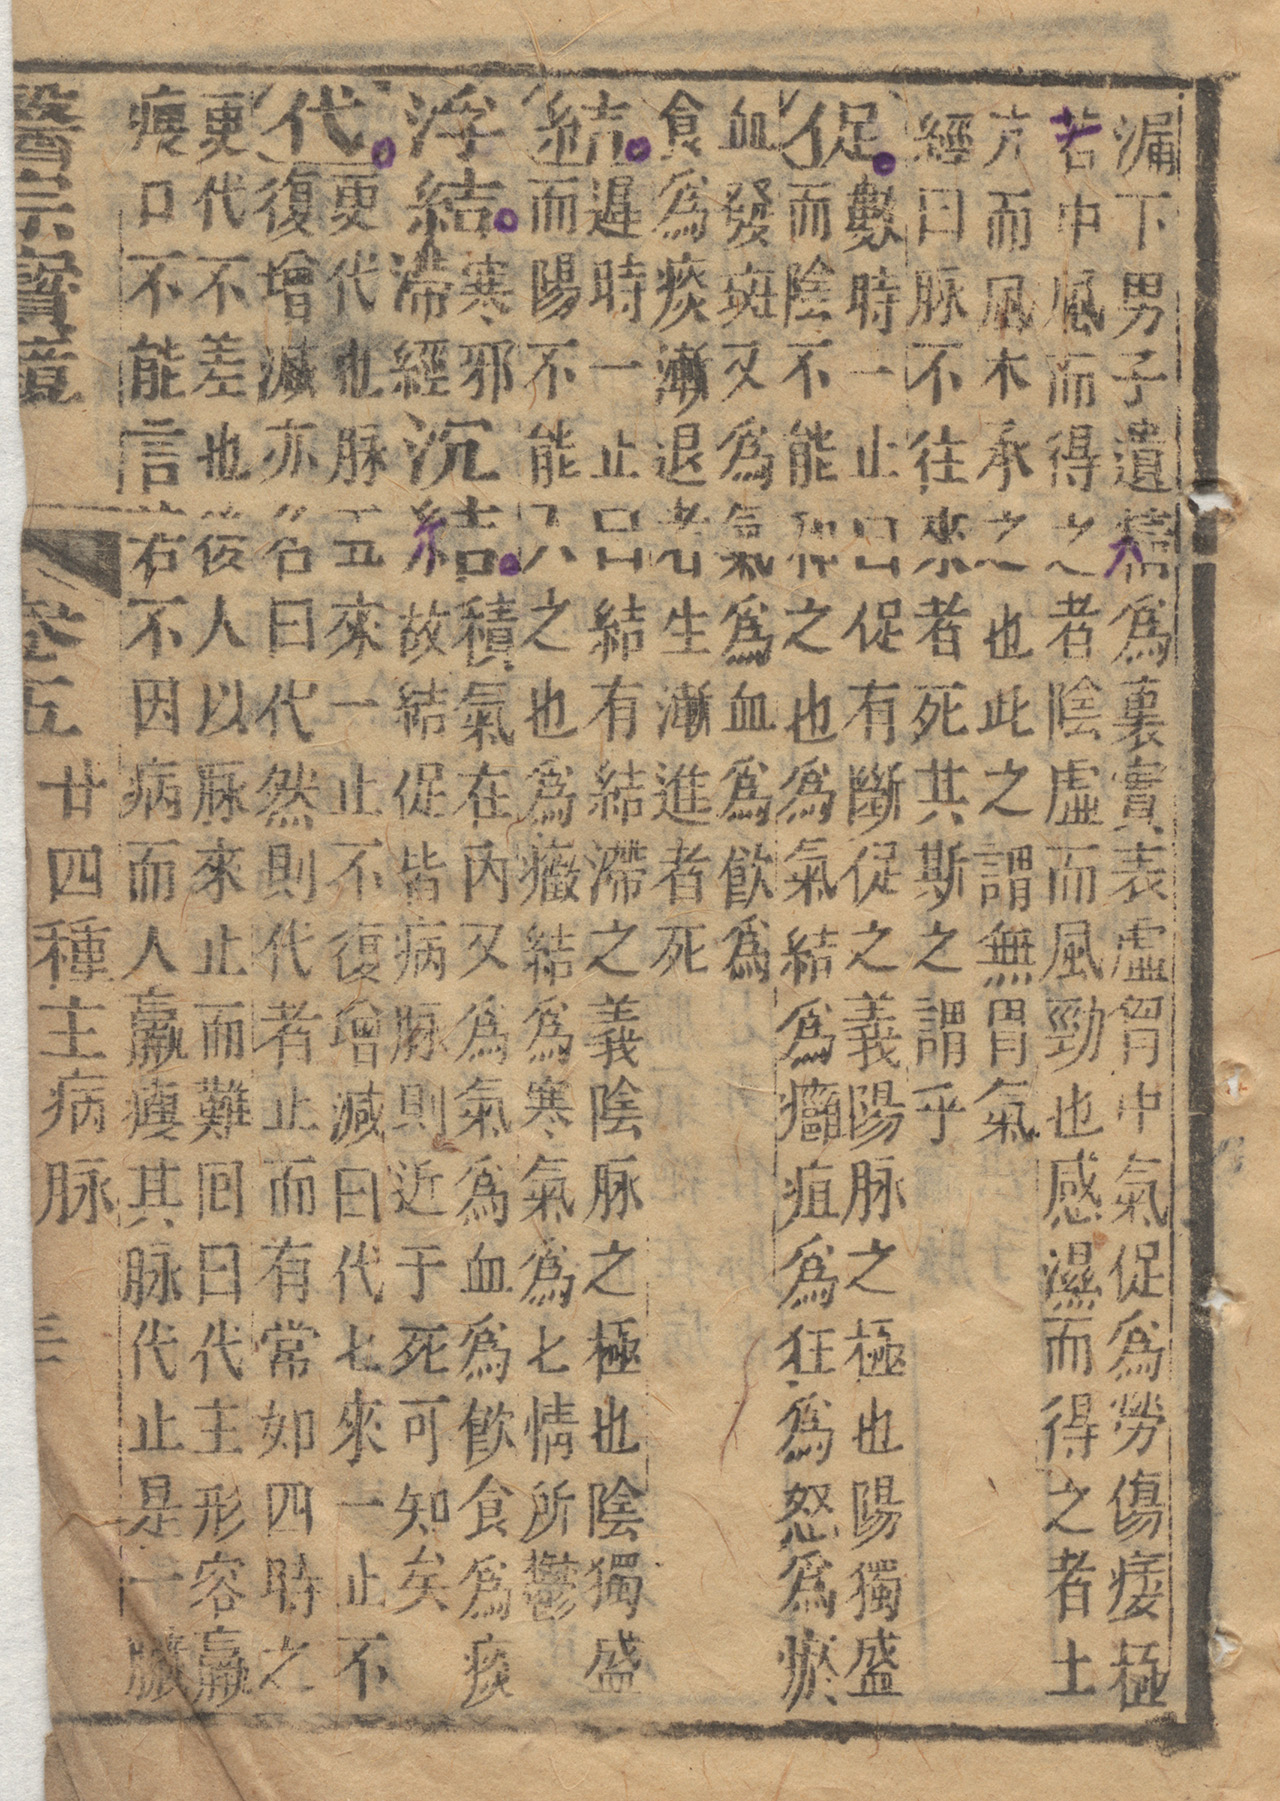 漏下男子遺䆿為裏實表虛胃中氣促為勞傷痿極
若中風而得之者陰虛而風勁也感濕而得之者土
亢而風木承之也此之謂無胃氣
經曰脉不往來者死其斯之謂乎
促 數時一止曰促有斷促之義陽脉之極也陽獨盛
而陰不能和之也為氣結為癰疽為狂為怒為瘀
血發斑又為氣為血為飲為
食為痰漸退者生漸進者死
結 遲時一止曰結有結滯之義陰脉之極也陰獨盛
而陽不能入之也為癥結為寒氣為七情所鬱
浮結 寒邪滯經 沉結 積氣在內又為氣為血為飲食為痰
故結促皆病脉則近于死可知矣
代 更代也脉五來一止不復增減曰代七來一止不
復增減亦名曰代然則代者止而有常如四時之
更代不差也後人以脉來止而難回曰代主形容羸
瘦口不能言若不因病而人羸瘦其脉代止是一臟
醫宗寶鏡 卷五 廿四種主病脉 三